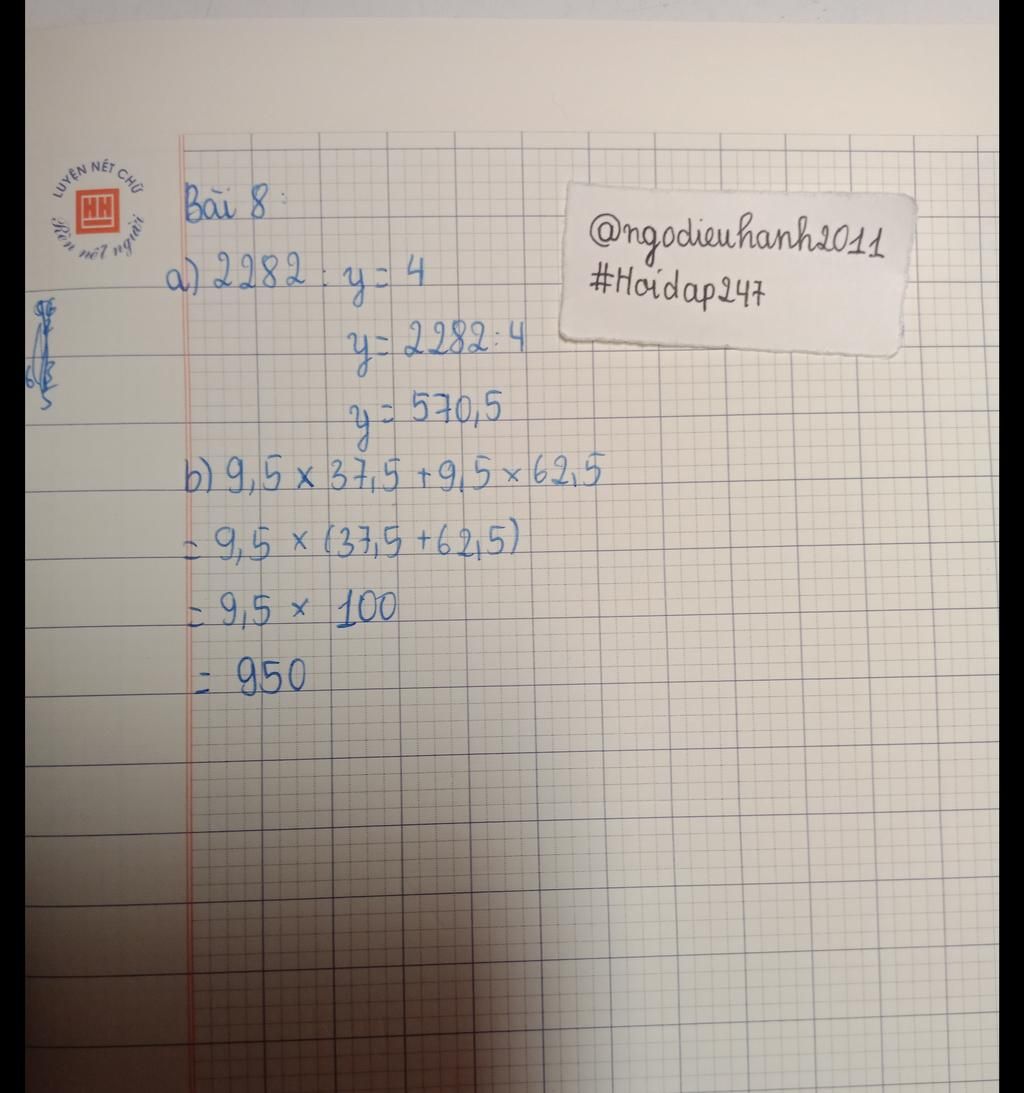 LUYỆN NÉT CHỮ
HH
Rèn nết người
Bài 8:
a) 2282 : y = 4
y = 2282 : 4
y = 570,5
b) 9,5 × 37,5 + 9,5 × 62,5
= 9,5 × (37,5 + 62,5)
= 9,5 × 100
= 950
@ngodieuhanh2011
#Hoidap247